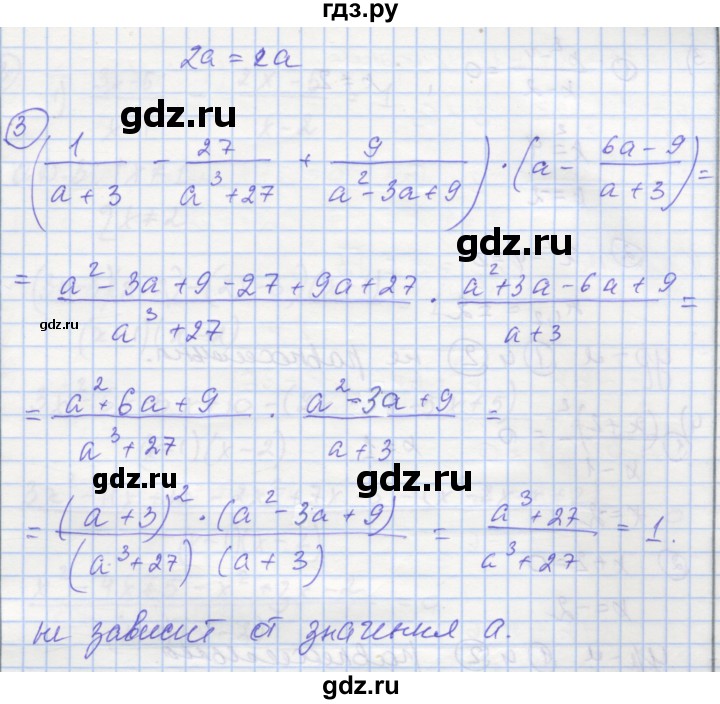 гдз.ру
2a = 2a
gdz.ru gdz.ru
3 (1/(a + 3) - 27/(a³ + 27) + 9/(a² - 3a + 9)) · (a - (6a - 9)/(a + 3)) =
gdz.ru gdz.ru
= (a² - 3a + 9 - 27 + 9a + 27)/(a³ + 27) · (a² + 3a - 6a + 9)/(a + 3) =
gdz.ru
gdz.ru
= (a² + 6a + 9)/(a³ + 27) · (a² - 3a + 9)/(a + 3) =
gdz.ru gdz.ru
= ((a + 3)² · (a² - 3a + 9))/((a³ + 27) (a + 3)) = (a³ + 27)/(a³ + 27) = 1.
gdz.ru gdz.ru
не зависит от значения a.
gdz.ru gdz.ru